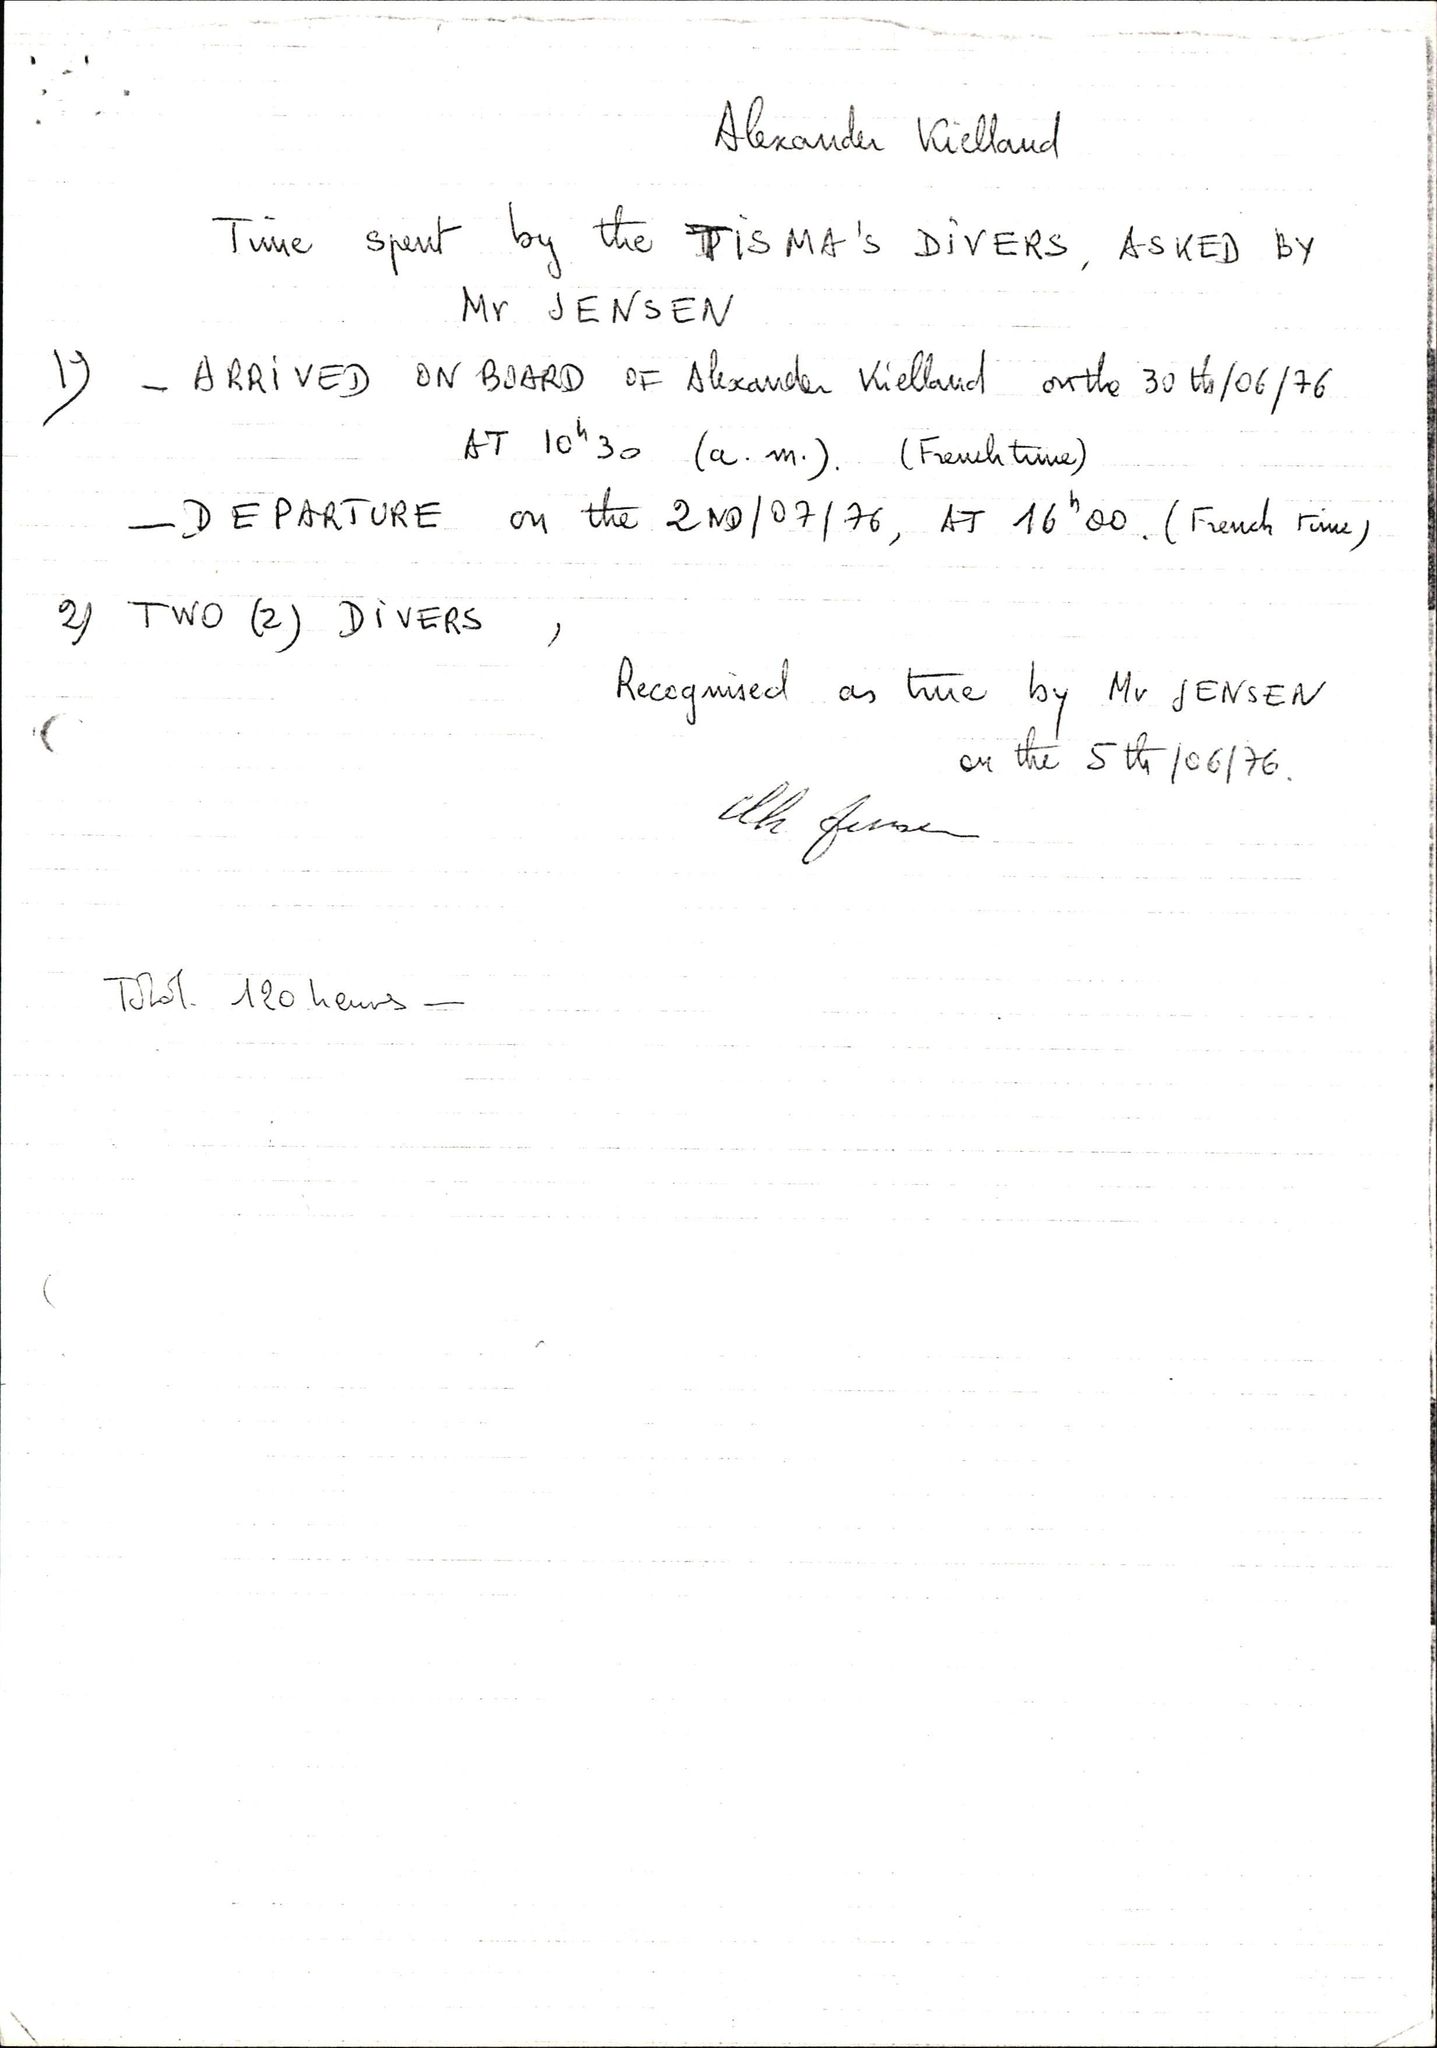 Alexander Kielland
Time spent by the TISMA'S DIVERS, ASKED BY
Mr JENSEN
1) - ARRIVED ON BOARD OF Alexander Kielland on the 30 th/06/76
AT 10h30 (a.m.). (French time)
- DEPARTURE on the 2ND/07/76, AT 16h00. (French time)
2) TWO (2) DIVERS,
Recognised as true by Mr JENSEN
on the 5 th/06/76.
Jensen
Total. 120 heures —